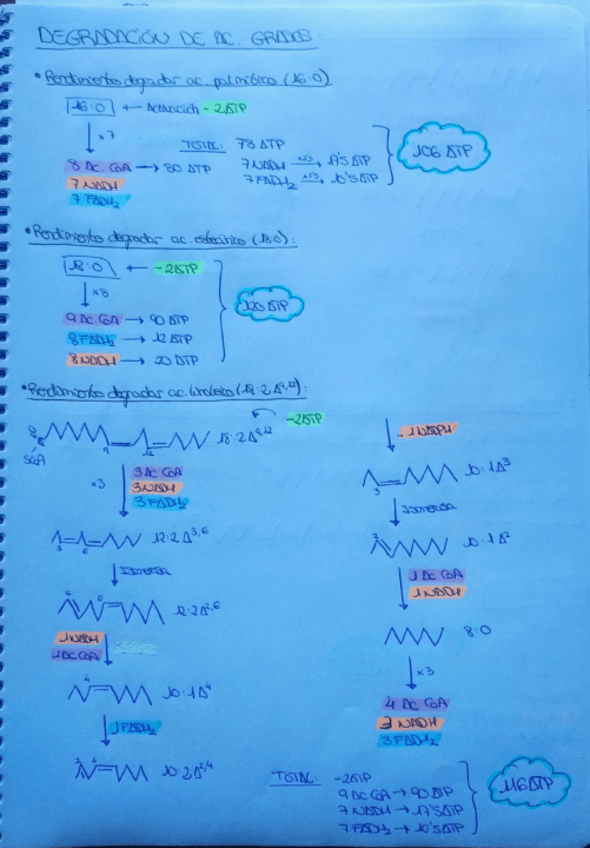 DEGRADACIÓN DE AC. GRASOS:
• Rendimiento degradar ac. palmítico (16:0)
16:0 ← Activación - 2ATP
x7
8 AC. CoA → 80 ATP
7 NADH
7 FADH₂
TOTAL: 78 ATP
7 NADH x2'5→ 17'5 ATP
7 FADH₂ x1'5→ 10'5 ATP
106 ATP
• Rendimiento degradar ac. esteárico (18:0):
18:0 ← -2ATP
x8
9 AC. CoA → 90 ATP
8 FADH₂ → 12 ATP
8 NADH → 20 ATP
120 ATP
• Rendimiento degradar ac. linoleico (18:2 Δ⁹,¹²):
-2ATP
9 12 18:2 Δ⁹,¹²
SCoA
x3
3 AC CoA
3 NADH
3 FADH₂
3 6 12:2 Δ³,⁶
Isomerasa
6 12:2 Δ²,⁶
1 NADH
1 AC CoA
4 10:1 Δ⁴
1 FADH₂
2 4 10:2 Δ²,⁴
- 1 NADPH
3 10:1 Δ³
Isomerasa
2 10:1 Δ²
1 AC CoA
1 NADH
8:0
x3
4 AC CoA
3 NADH
3 FADH₂
TOTAL: -2ATP
9 AC CoA → 90 ATP
7 NADH → 17'5 ATP
7 FADH₂ → 10'5 ATP
116 ATP